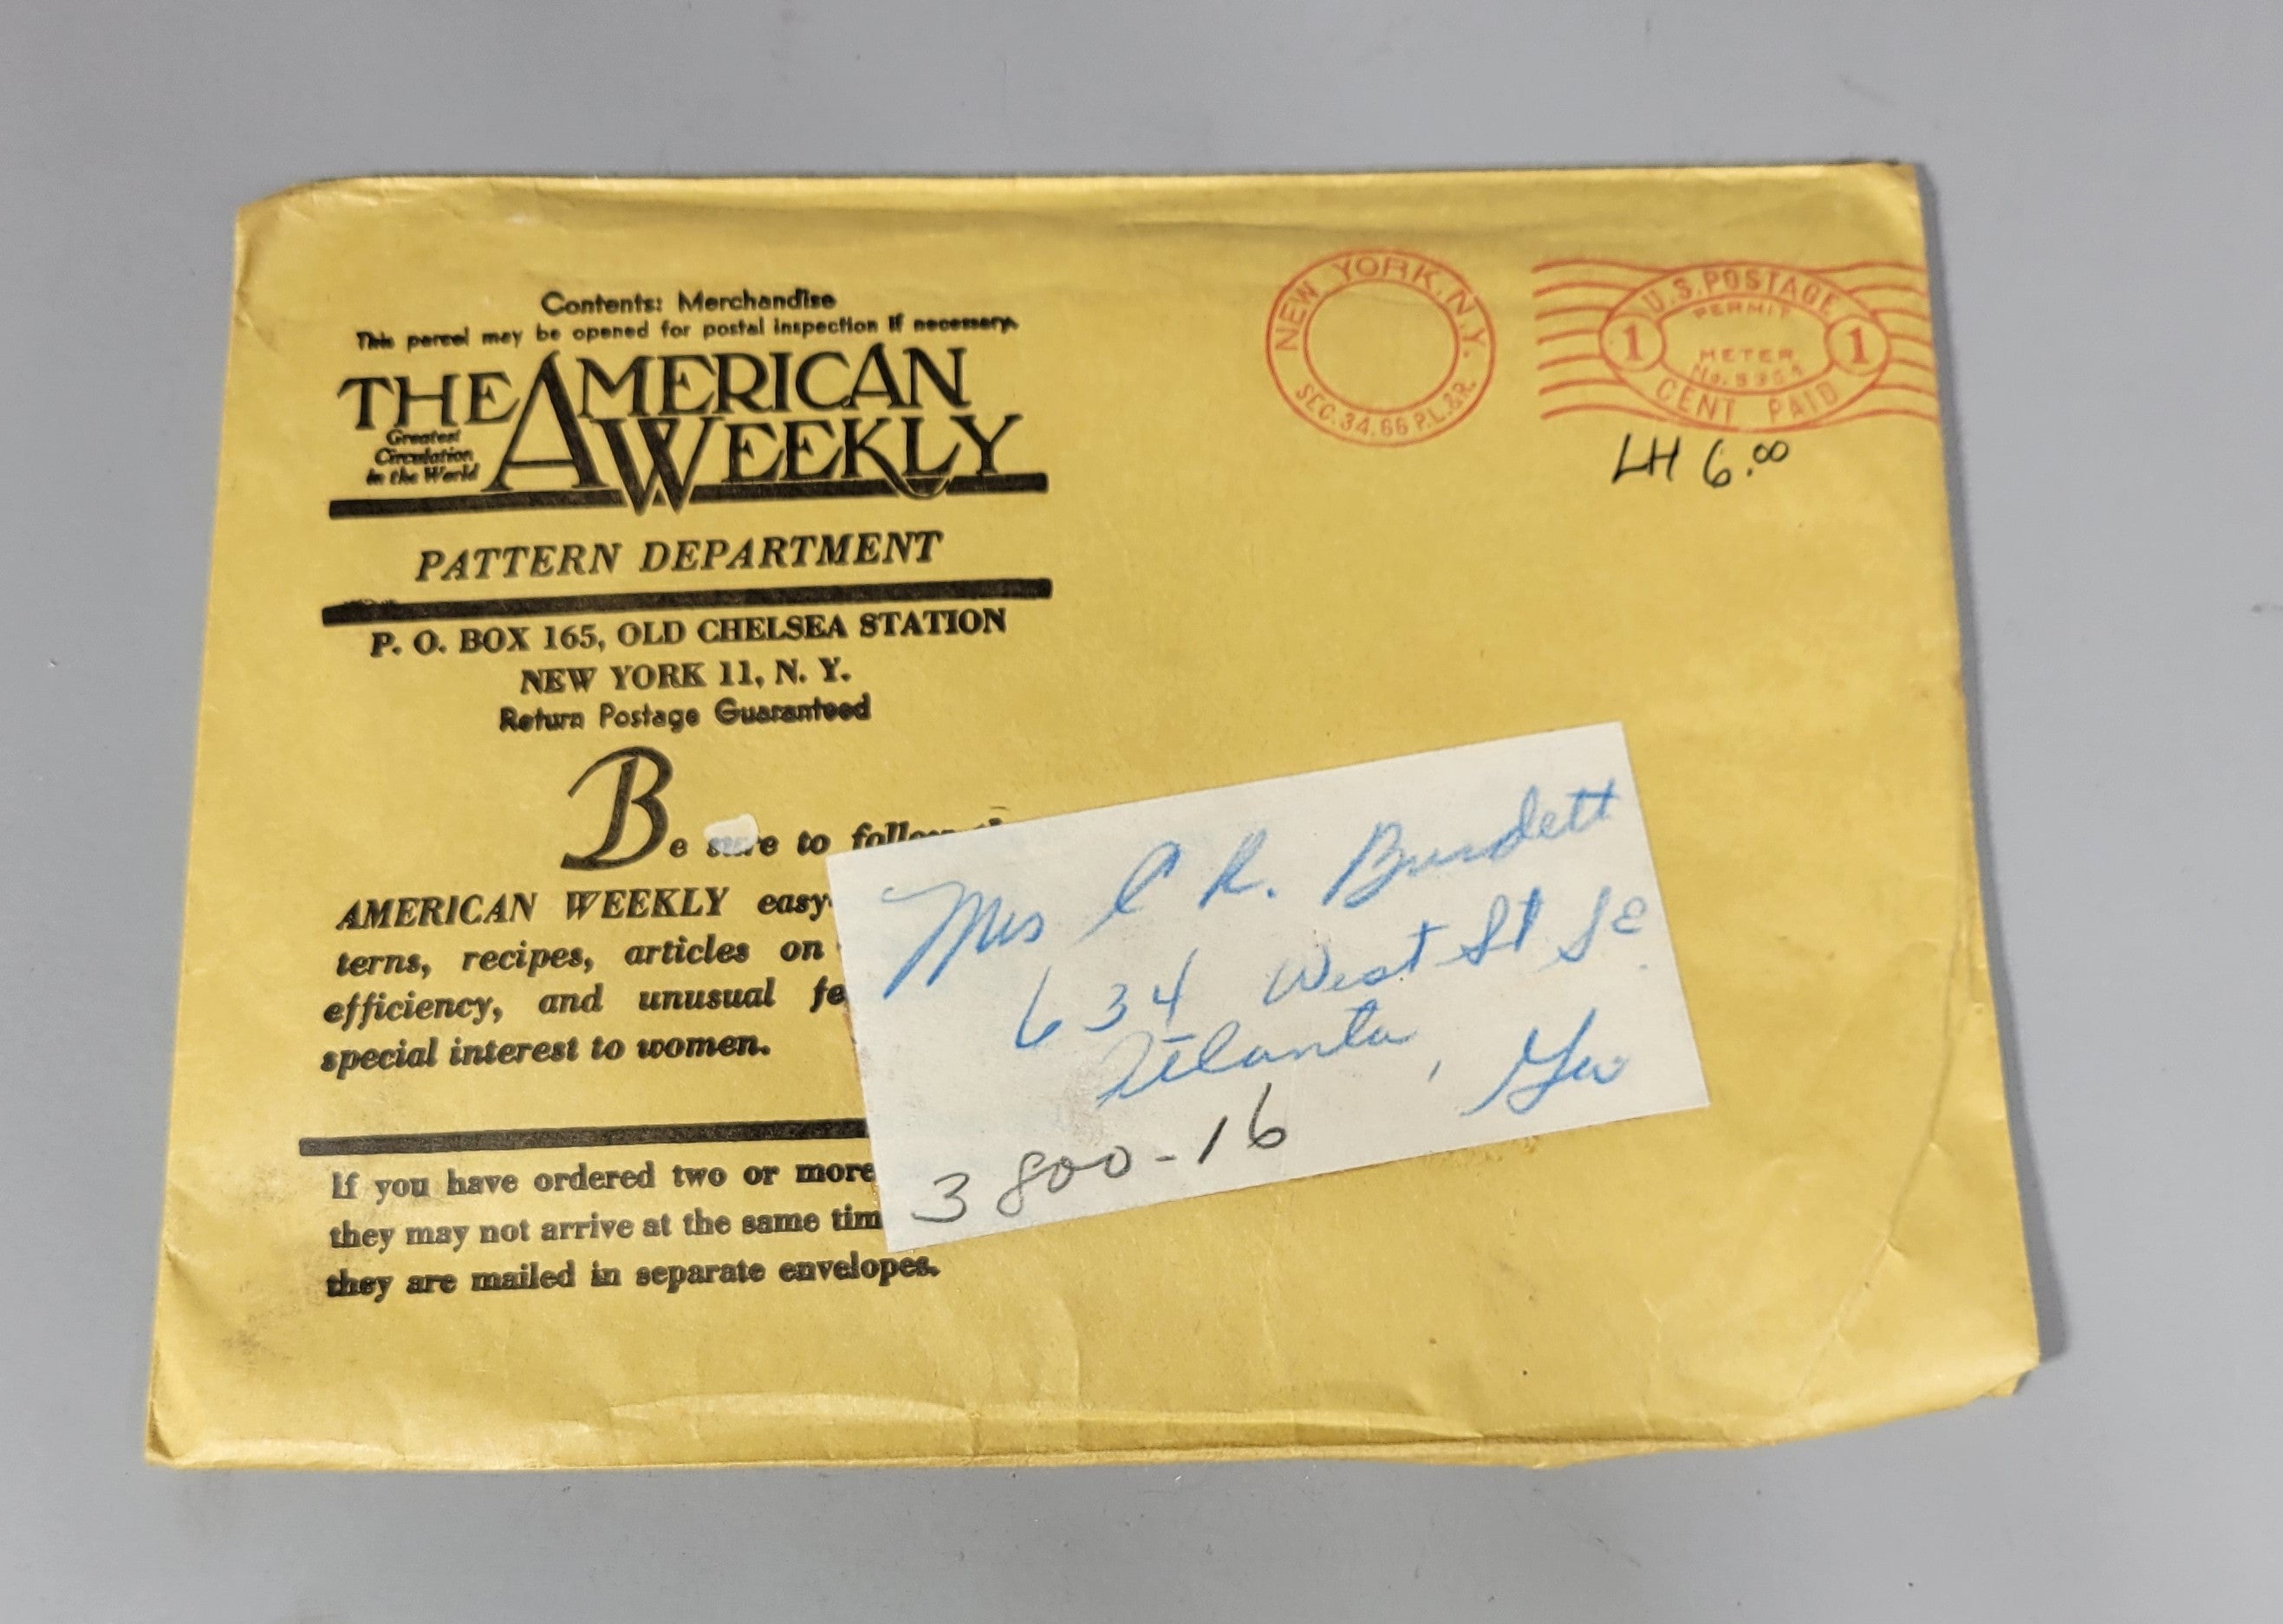 Contents: Merchandise
This parcel may be opened for postal inspection if necessary.
THE AMERICAN WEEKLY
Greatest
Circulation
in the World
PATTERN DEPARTMENT
P. O. BOX 165, OLD CHELSEA STATION
NEW YORK 11, N. Y.
Return Postage Guaranteed
Be sure to follow
AMERICAN WEEKLY easy
terns, recipes, articles on
efficiency, and unusual fe
special interest to women.
If you have ordered two or more
they may not arrive at the same tim
they are mailed in separate envelopes.
NEW YORK, N.Y.
SEC. 34.66 P.L.&R.
U.S. POSTAGE
PERMIT
1 1
METER
No.
CENT PAID
LH 6.00
Mrs C R. Burdett
634 West St SE
Atlanta, Ga
3800-16